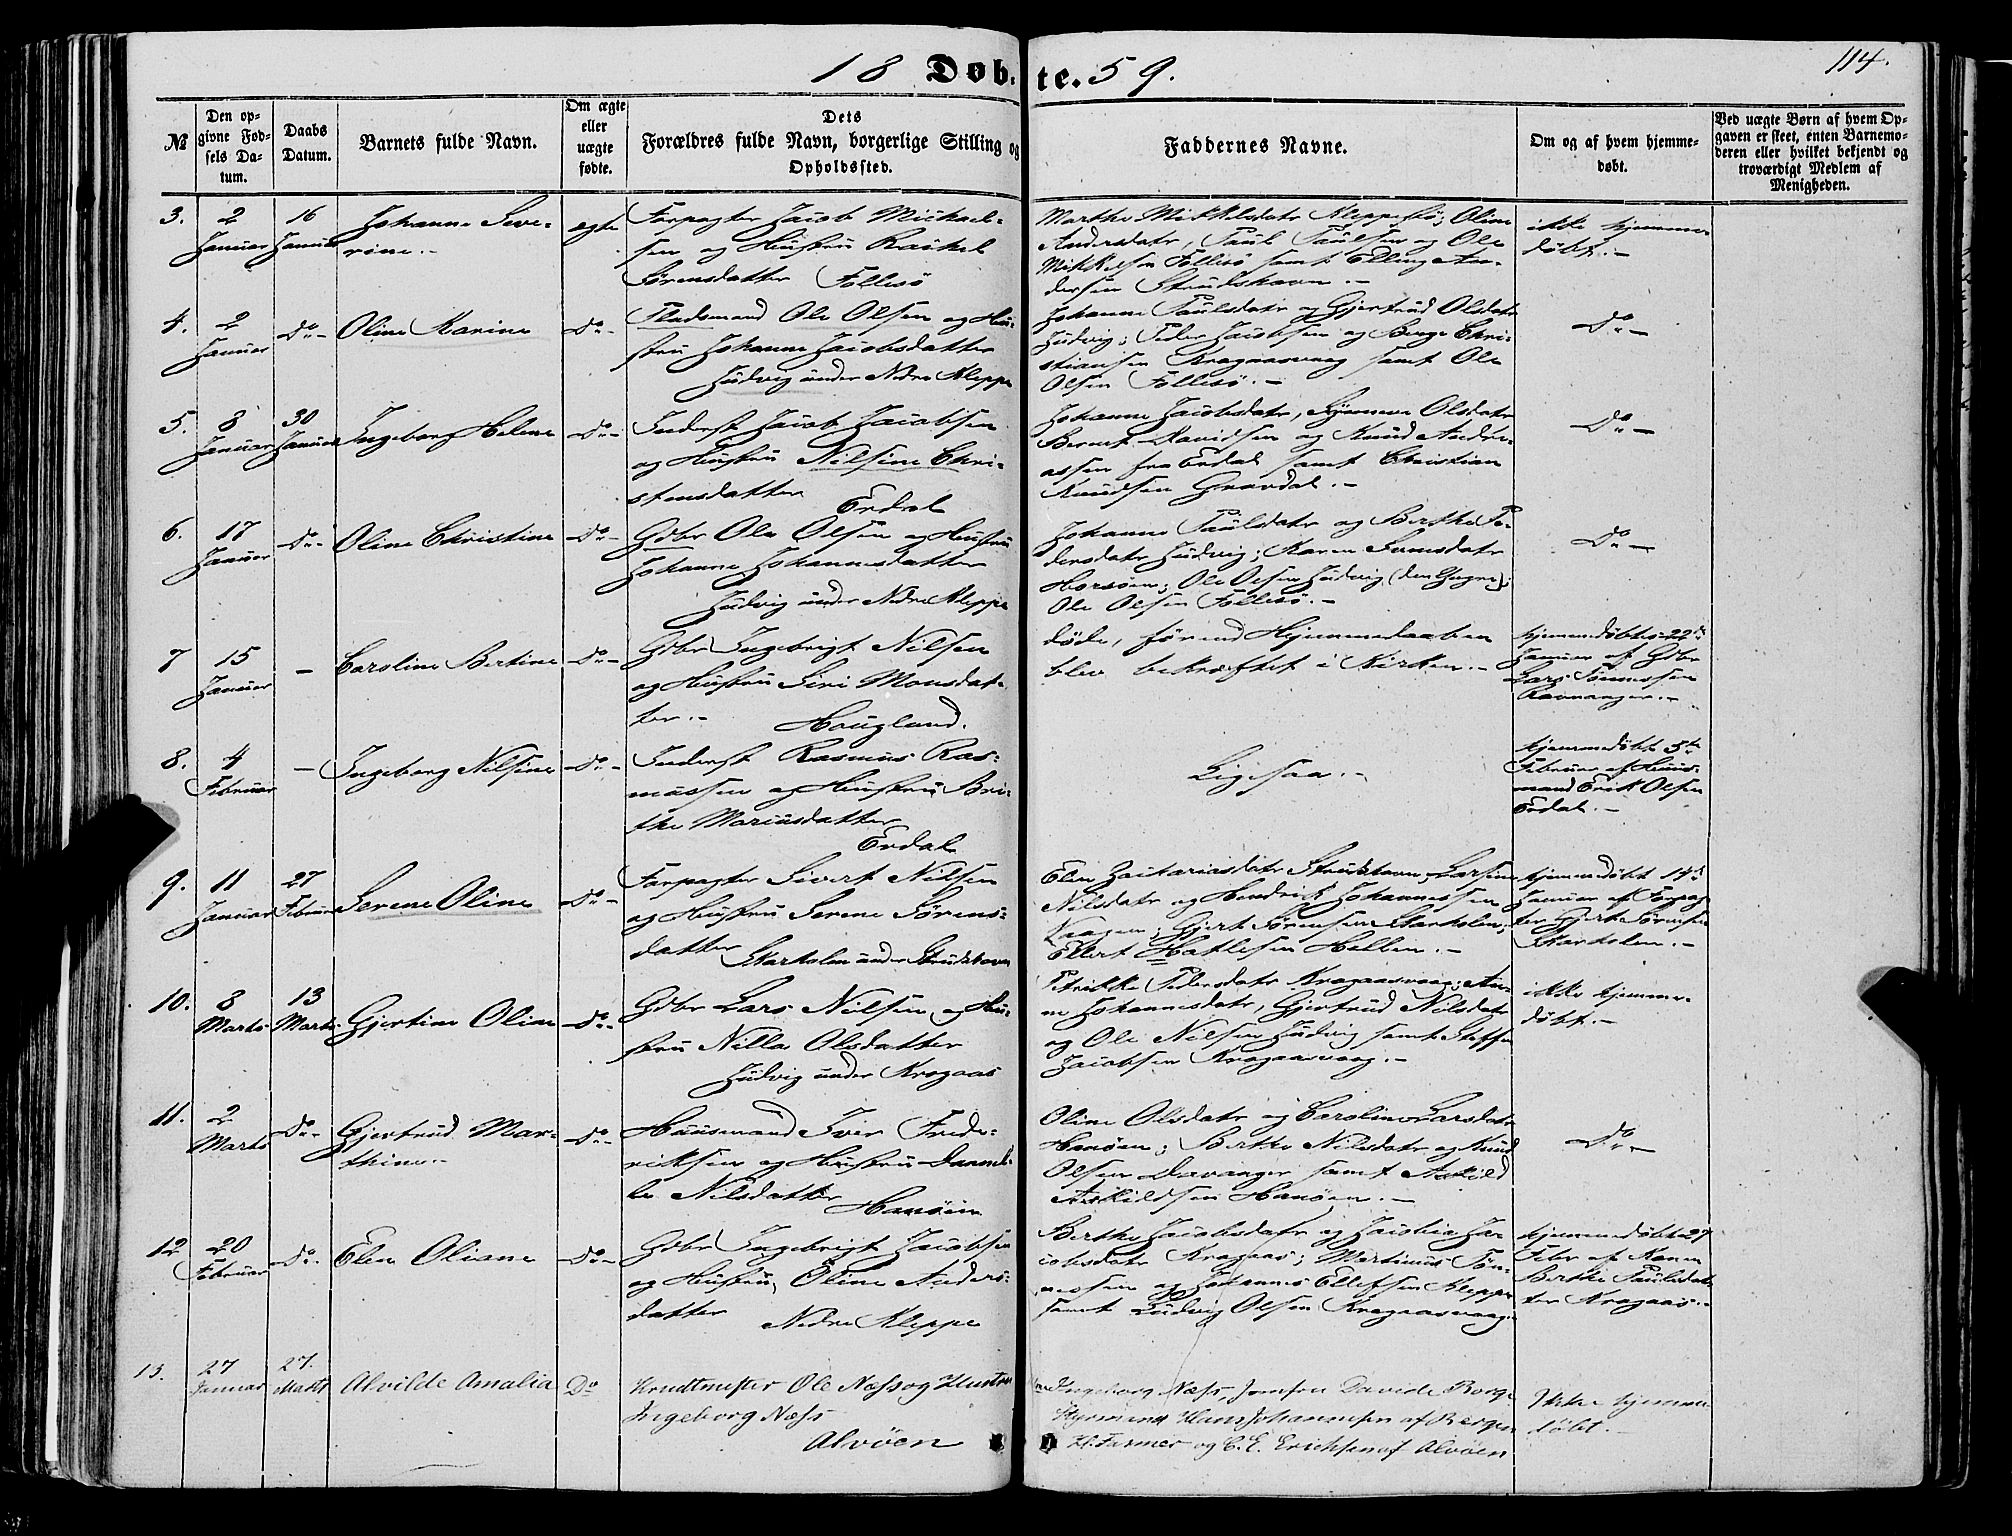 18 Døb-te. 59.
114.
№
Den opgivne Fødsels Datum.
Daabs Datum.
Barnets fulde Navn.
Om ægte eller uægte fødte.
Dets Forældres fulde Navn, borgerlige Stilling og Opholdssted.
Faddernes Navne.
Om og af hvem hjemmedøbt.
Ved uægte Børn af hvem Opgaven er skeet, enten Barnemoderen eller hvilket bekjendt og troværdigt Medlem af Menigheden.
3.
2 Januar
16 Januar
Johanne Seve-
rine.-
egte
Forpagter Jacob Michael-
sen og Hustru Rachel
Sørensdatter Follesø
Marthe Mikkelsdatr Kleppesø; Oline
Andersdatr, Paul Paulsen og Ole
Mikkelsen Follesø samt Elling An-
dersen Strudshavn.-
ikke hjemme-
døbt.-
4.
2 Januar
Do-
Oline Karine
Do-
Pladsmand Ole Olsen og Hu-
stru Johanne Jacobsdatter
Judvig under Nedre Kleppe
Johanne Paulsdatr og Gjertrud Olsdatr
Judvig; Peder Jacobsen og Berge Chri-
stiansen Kragaasvaag samt Ole
Olsen Follesø.-
Do-
5.
8 Januar
30 Januar
Ingeborg Helene
Do-
Inderst Jacob Jacobsen
og Hustru Nilsine Chri-
stensdatter
Erdal
Johanne Jacobsdatr, Synneve Olsdatr
Bernt Davidsen og Knud Andre-
assen fra Erdal samt Christian
Knudsen Gravdal.-
Do-
6.
17 Januar
Do-
Oline Christine
Do-
Gdbr Ole Olsen og Hustru
Johanne Johannesdatter
Judvig under Nedre Kleppe
Johanne Paulsdatr og Berthe Pe-
dersdatr Judvig; Karen
Horsøen; Ole Olsen Judvig (den Yngre);
Ole Olsen Follesø.-
Do-
7
15 Januar
-
Caroline Bertine
Do-
Gdbr Ingebrigt Nilsen
og Hustru Siri Monsdat-
ter.-
Hougland.
døde, førend Hjemmedaaben
blev bekræftet i Kirken.-
hjemmedøbt 22de
Januar af Gdbr
Lars Tønnesen
Ravnanger.-
8.
4 Februar
-
Ingeborg Nilsine
Do-
Inderst Rasmus Ras-
mussen og Hustru Bri-
the Mariusdatter
Erdal
Ligesaa.-
hjemmedøbt 5te
Februar af Huus-
mand Erik Olsen
Erdal.-
9.
11 Januar
27 Februar
Serene Oline
Do-
Forpagter Sivert Nilsen
og Hustru Serene Sørens-
datter
Skarholm under Strudshavn
Elen Zachariasdatr Strudshavn,
Nilsdatr og Hendrik Johannessen
Vaagen; Gjert Sørensen Skarholm;
Ellert Hatlesen Hellen.-
hjemmedøbt 14de
Januar af Forpag-
ter Gjert Sørensen
Skarholm.-
10.
8 Marts
13 Marts
Gjertine Oline
Do-
Gdbr Lars Nilsen og Hu-
stru Nilla Olsdatter
Judvig under Kragaas
Petrikke Pedersdatr Kragaasvaag; An-
ne Johannesdatr, Gjertrud Nilsdatr
og Ole Nilsen Judvig samt Steffen
Jacobsen Kragaasvaag.-
ikke hjemme-
døbt.-
11.
2 Marts
Do-
Gjertrud Mar-
thine.-
Do-
Huusmand Iver Frede-
riksen og Hustru
Nilsdatter
Hanøen
Oline Olsdatr og Caroline Larsdatr
Hanøen; Berthe Nilsdatr og Knud
Olsen Davanger samt Askild
Askildsen Hanøen.-
Do-
12
20 Februar
Do.
Elen Oliane
Do-
Gdbr Ingebrigt Jacobsen
og Hustru Oline Anders-
datter
Nedre Kleppe
Berthe Jacobsdatr og Jacobia Ja-
cobsdatr Kragaas; Martinus Tøn-
nessen og Johannes Ellefsen Kleppe
samt Ludvig Olsen Kragaasvaag.
hjemmedøbt 27
Febr af Konen
Berthe Paulsdat-
ter Kragaas.-
13.
27 Januar
27. Marts
Alvilde Amalia
Do
Krudtmester Ole Næss og Hustru
Ingeborg Næss
Alvøen
Ingeborg Næss, Jomfru Davide Borge
Styrmand Hans Johannesen af Bergen
H. Farmer og C. E. Erichsen af Alvøen
Ikke hjemme
døbt.-